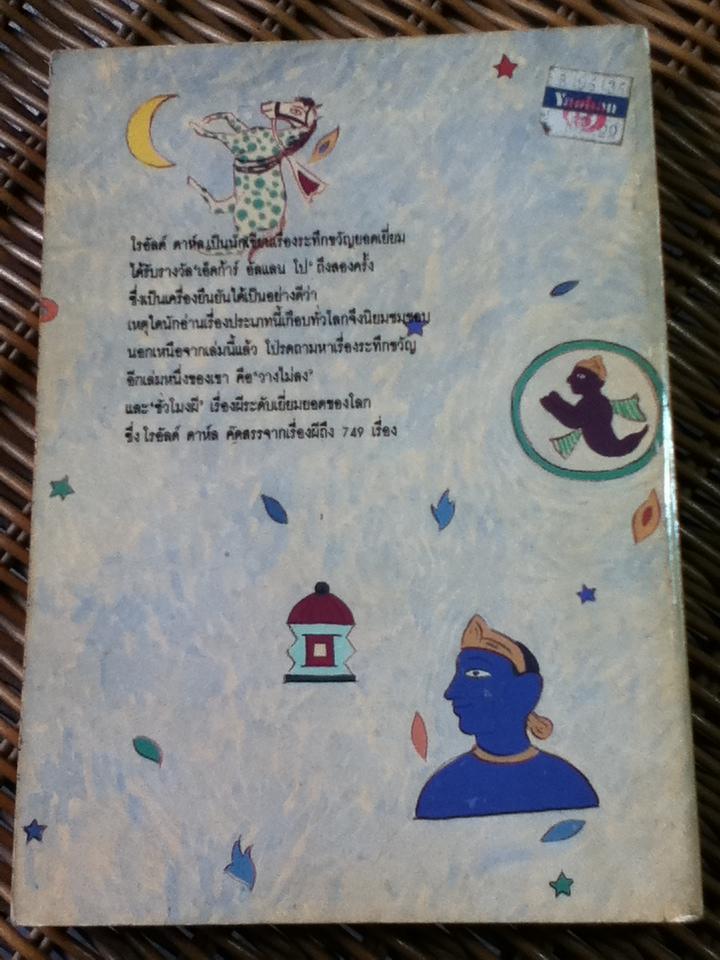 โรอัลด์ ดาห์ล เป็นนักเขียนเรื่องระทึกขวัญยอดเยี่ยม
ได้รับรางวัล"เอ็ดก้าร์ อัลแลน โป" ถึงสองครั้ง
ซึ่งเป็นเครื่องยืนยันได้เป็นอย่างดีว่า
เหตุใดนักอ่านเรื่องประเภทนี้เกือบทั่วโลกจึงนิยมชมชอบ
นอกเหนือจากเล่มนี้แล้ว โปรดถามหาเรื่องระทึกขวัญ
อีกเล่มหนึ่งของเขา คือ"วางไม่ลง"
และ"ชั่วโมงผี" เรื่องผีระดับเยี่ยมยอดของโลก
ซึ่ง โรอัลด์ ดาห์ล คัดสรรจากเรื่องผีถึง 749 เรื่อง